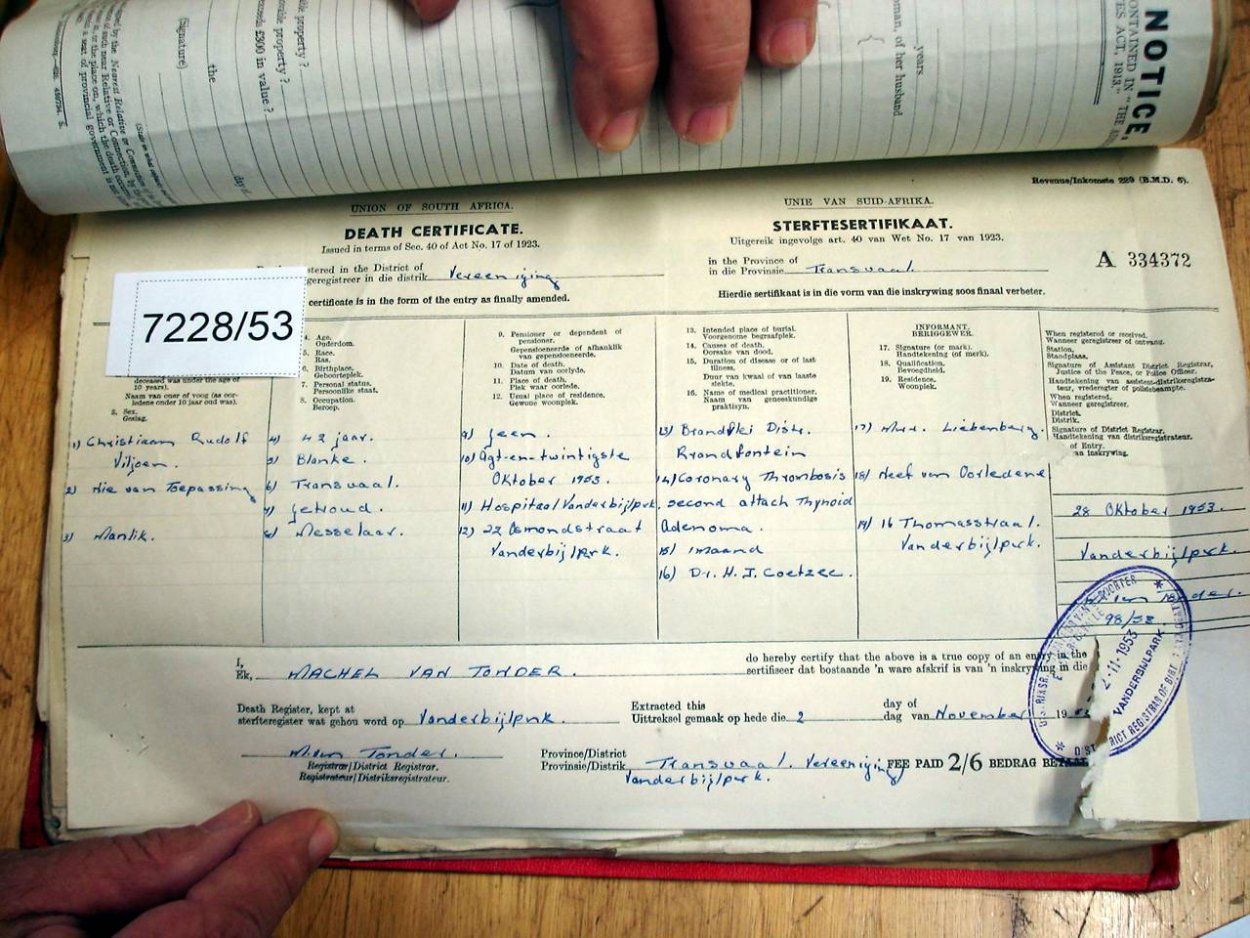 NOTICE,
CONTAINED IN "THE
ACT, 1913."
years
of her husband
property ?
property ?
£300 in value ?
(Signature)
the
day of
by the Nearest Relative or
of such near Relative or Connection, by the
or the place on, which the death
a seat of provincial government is
Revenue/Inkomste 229 (B.M.D. 6).
UNION OF SOUTH AFRICA.
UNIE VAN SUID-AFRIKA.
DEATH CERTIFICATE.
STERFTESERTIFIKAAT.
Issued in terms of Sec. 40 of Act No. 17 of 1923.
Uitgereik ingevolge art. 40 van Wet No. 17 van 1923.
in the District of
geregistreer in die distrik Vereeniging
in the Province of
in die Provinsie Transvaal.
A 334372
certificate is in the form of the entry as finally amended.
Hierdie sertifikaat is in die vorm van die inskrywing soos finaal verbeter.
7228/53
deceased was under the age of
10 years).
Naam van ouer of voog (as oor-
ledene onder 10 jaar oud was).
3. Sex.
Geslag.
4. Age.
Ouderdom.
5. Race.
Ras.
6. Birthplace.
Geboorteplek.
7. Personal status.
Persoonlike staat.
8. Occupation.
Beroep.
9. Pensioner or dependent of
pensioner.
Gepensioeneerde of afhanklik
van gepensioeneerde.
10. Date of death.
Datum van oorlyde.
11. Place of death.
Plek waar oorlede.
12. Usual place of residence.
Gewone woonplek.
13. Intended place of burial.
Voorgenome begraafplek.
14. Causes of death.
Oorsake van dood.
15. Duration of disease or of last
illness.
Duur van kwaal of van laaste
siekte.
16. Name of medical practitioner.
Naam van geneeskundige
praktisyn.
INFORMANT.
BERIGGEWER.
17. Signature (or mark).
Handtekening (of merk).
18. Qualification.
Bevoegdheid.
19. Residence.
Woonplek.
When registered or received.
Wanneer geregistreer of ontvang.
Station.
Standplaas.
Signature of Assistant District Registrar,
Justice of the Peace, or Police Officer.
Handtekening van assistent-distriksregistra-
teur, vrederegter of polisiebeampte.
When registered.
Wanneer geregistreer.
District.
Distrik.
Signature of District Registrar.
Handtekening van distriksregistrateur.
of Entry.
van inskrywing.
1) Christiaan Rudolf
Viljoen.
2) Nie van Toepassing
3) Manlik.
4) 42 jaar.
5) Blanke.
6) Transvaal.
7) Getroud.
8) Messelaar.
9) Geen.
10) Agt-en-twintigste
Oktober 1953.
11) Hospitaal Vanderbijlprk.
12) 22 Osmondstraat
Vanderbijlprk.
13) Brandvlei Distr.
Randfontein
14) Coronary Thrombosis
second attack Thyroid
Adenoma.
15) 1 maand
16) Dr. H. J. Coetzee.
17) Liebenberg.
18) Neef van Oorledene
19) 16 Thomasstraat.
Vanderbijlprk.
28 Oktober 1953.
Vanderbijlprk.
98/53
I,
Ek, MACHEL VAN TONDER.
do hereby certify that the above is a true copy of an entry in the
sertifiseer dat bostaande 'n ware afskrif is van 'n inskrywing in die
Death Register, kept at
sterfteregister wat gehou word op Vanderbijlprk.
Extracted this
Uittreksel gemaak op hede die 2
day of
dag van November 19
M. van Tonder.
Registrar/District Registrar.
Registrateur/Distriksregistrateur.
Province/District
Provinsie/Distrik Transvaal. Vereeniging
Vanderbijlprk.
FEE PAID 2/6 BEDRAG BETAAL
2-11-1953
VANDERBIJLPARK
DISTRICT REGISTRAR OF BIRTHS